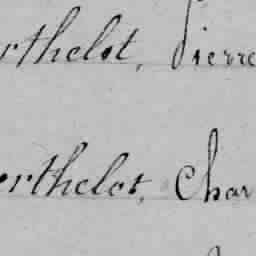 rthelot, Pierre
erthelot, Char